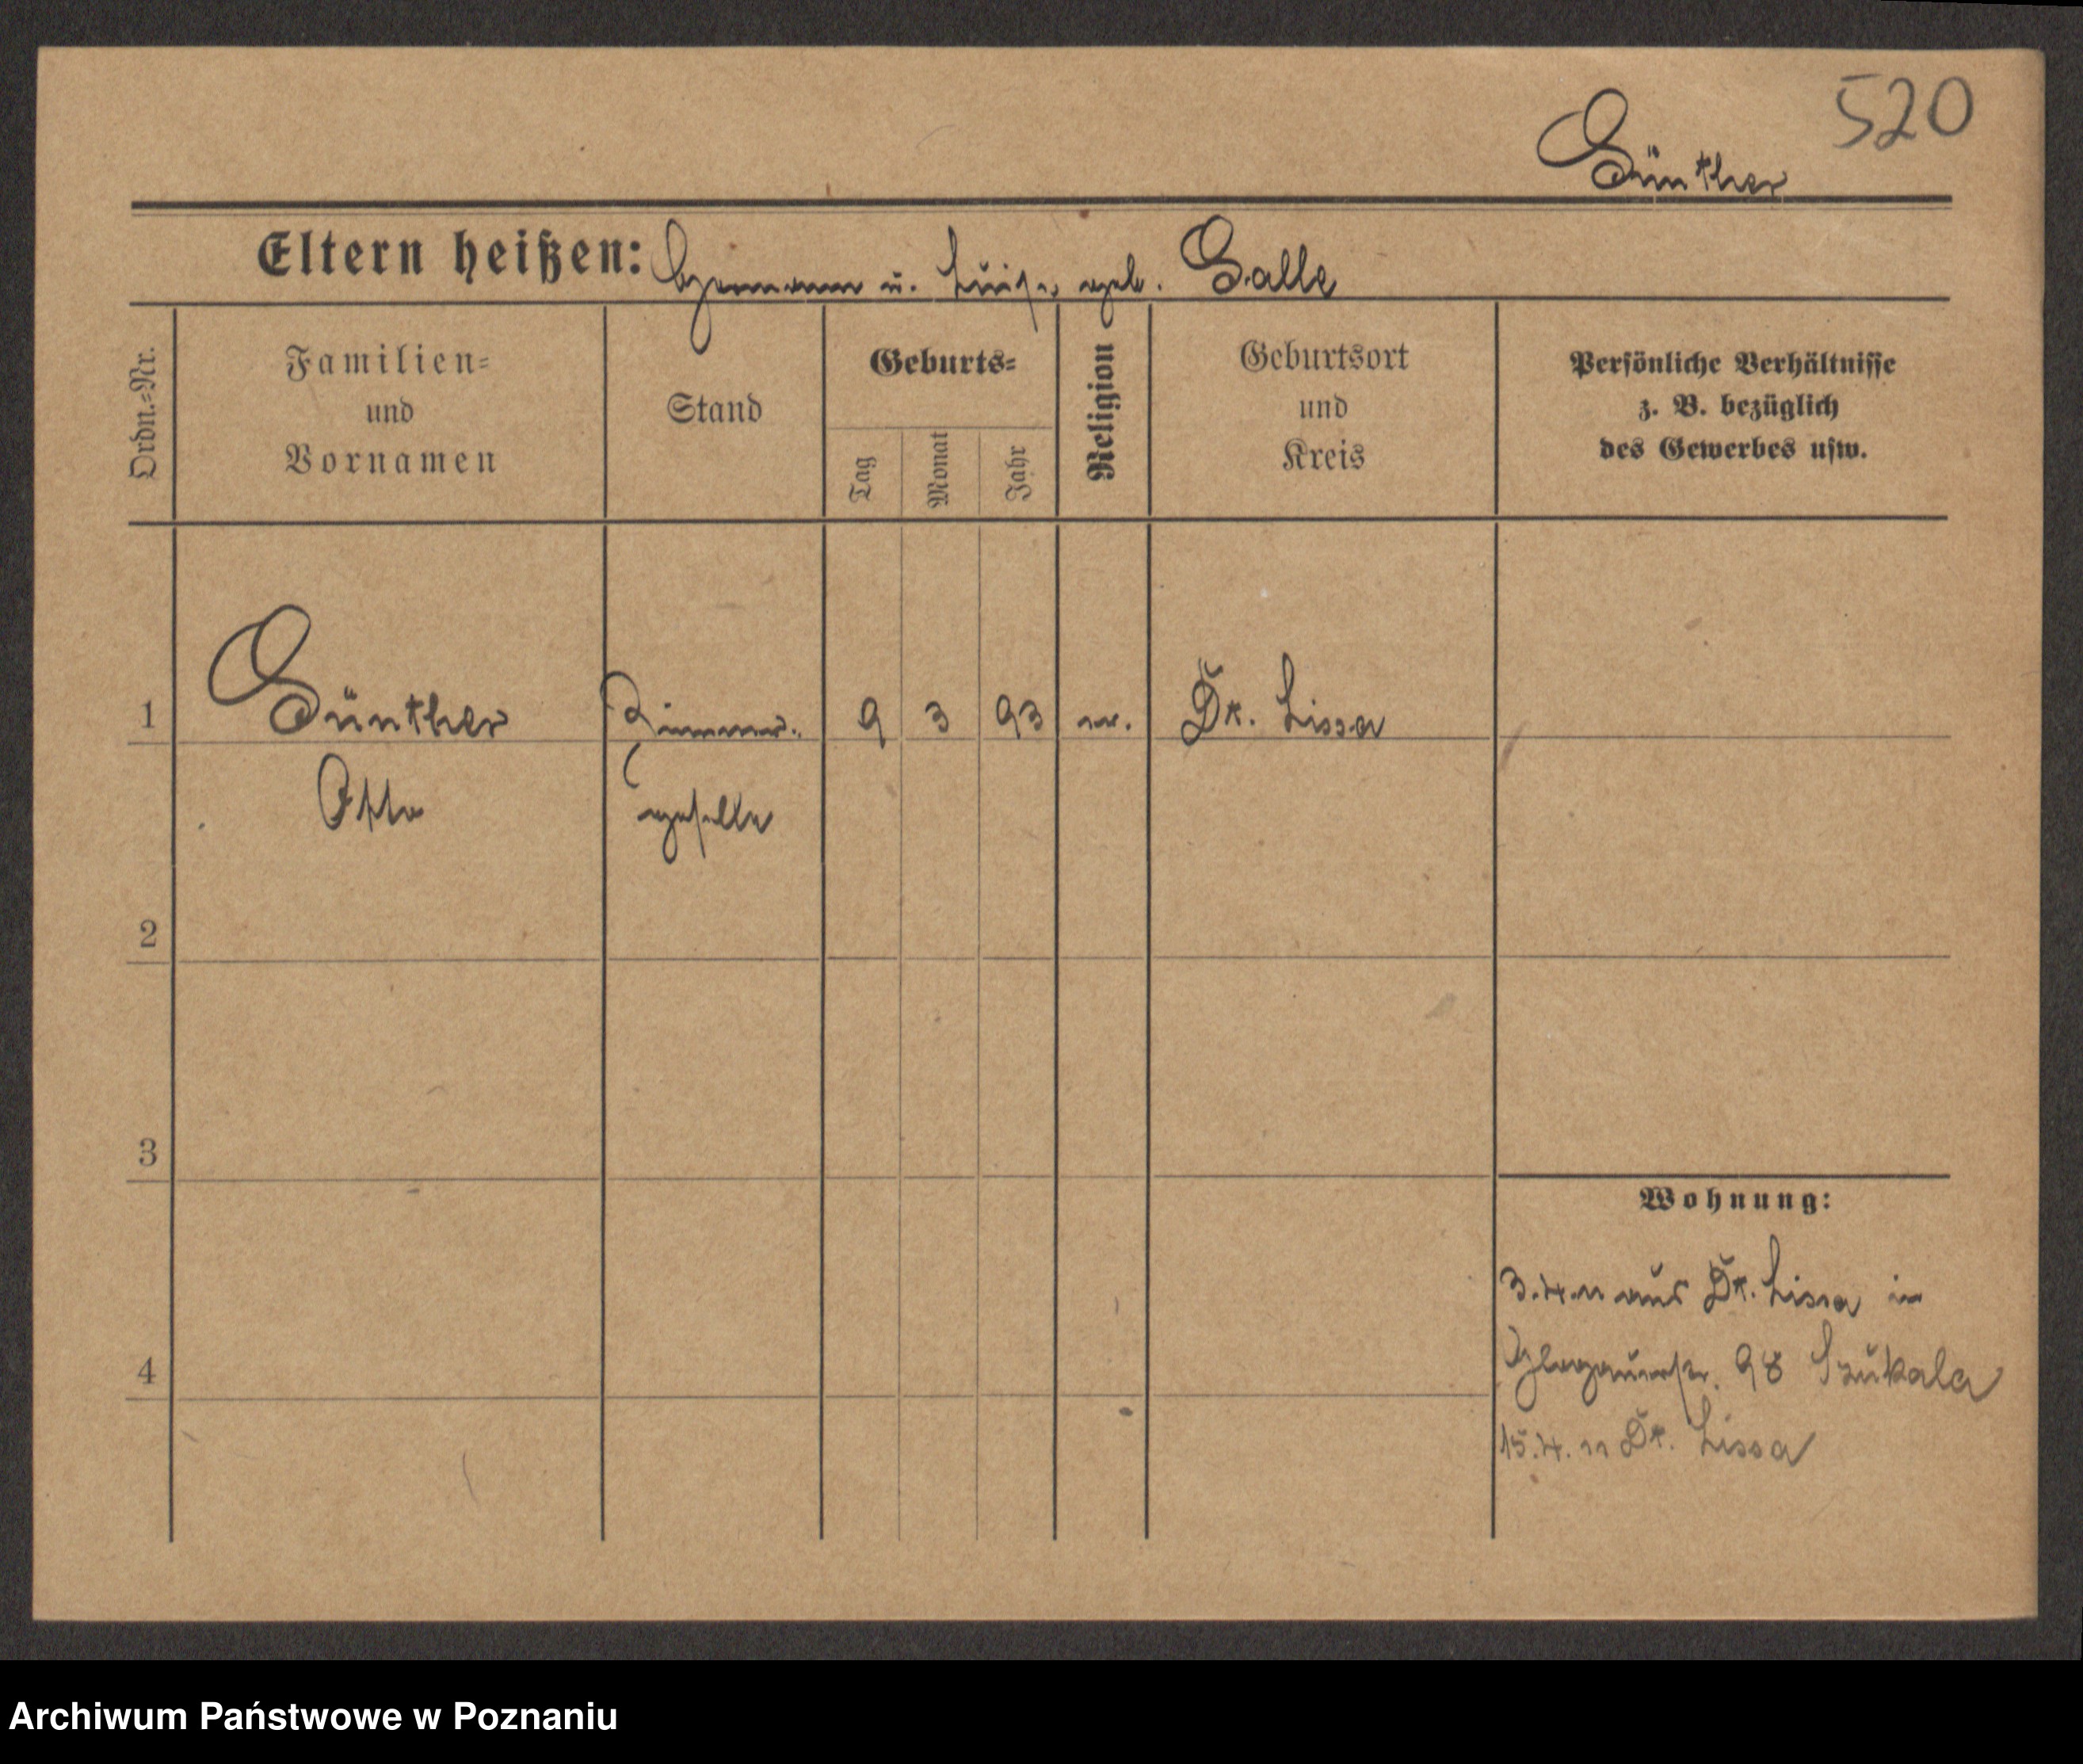 520
Günther
Eltern heißen: Hermann u. Luise geb. Galle
Ordn.=Nr.
Familien=
und
Vornamen
Stand
Geburts=
Tag
Monat
Jahr
Religion
Geburtsort
und
Kreis
Persönliche Verhältnisse
z. B. bezüglich
des Gewerbes usw.
1 Günther Zimmer. 9 3 93 ev. Dt. Lissa
Otto geselle
2
3
Wohnung:
3.4.11 aus Dt. Lissa in
4
Glogauerstr. 98 Szukala
15.4.11 Dt. Lissa
Archiwum Państwowe w Poznaniu